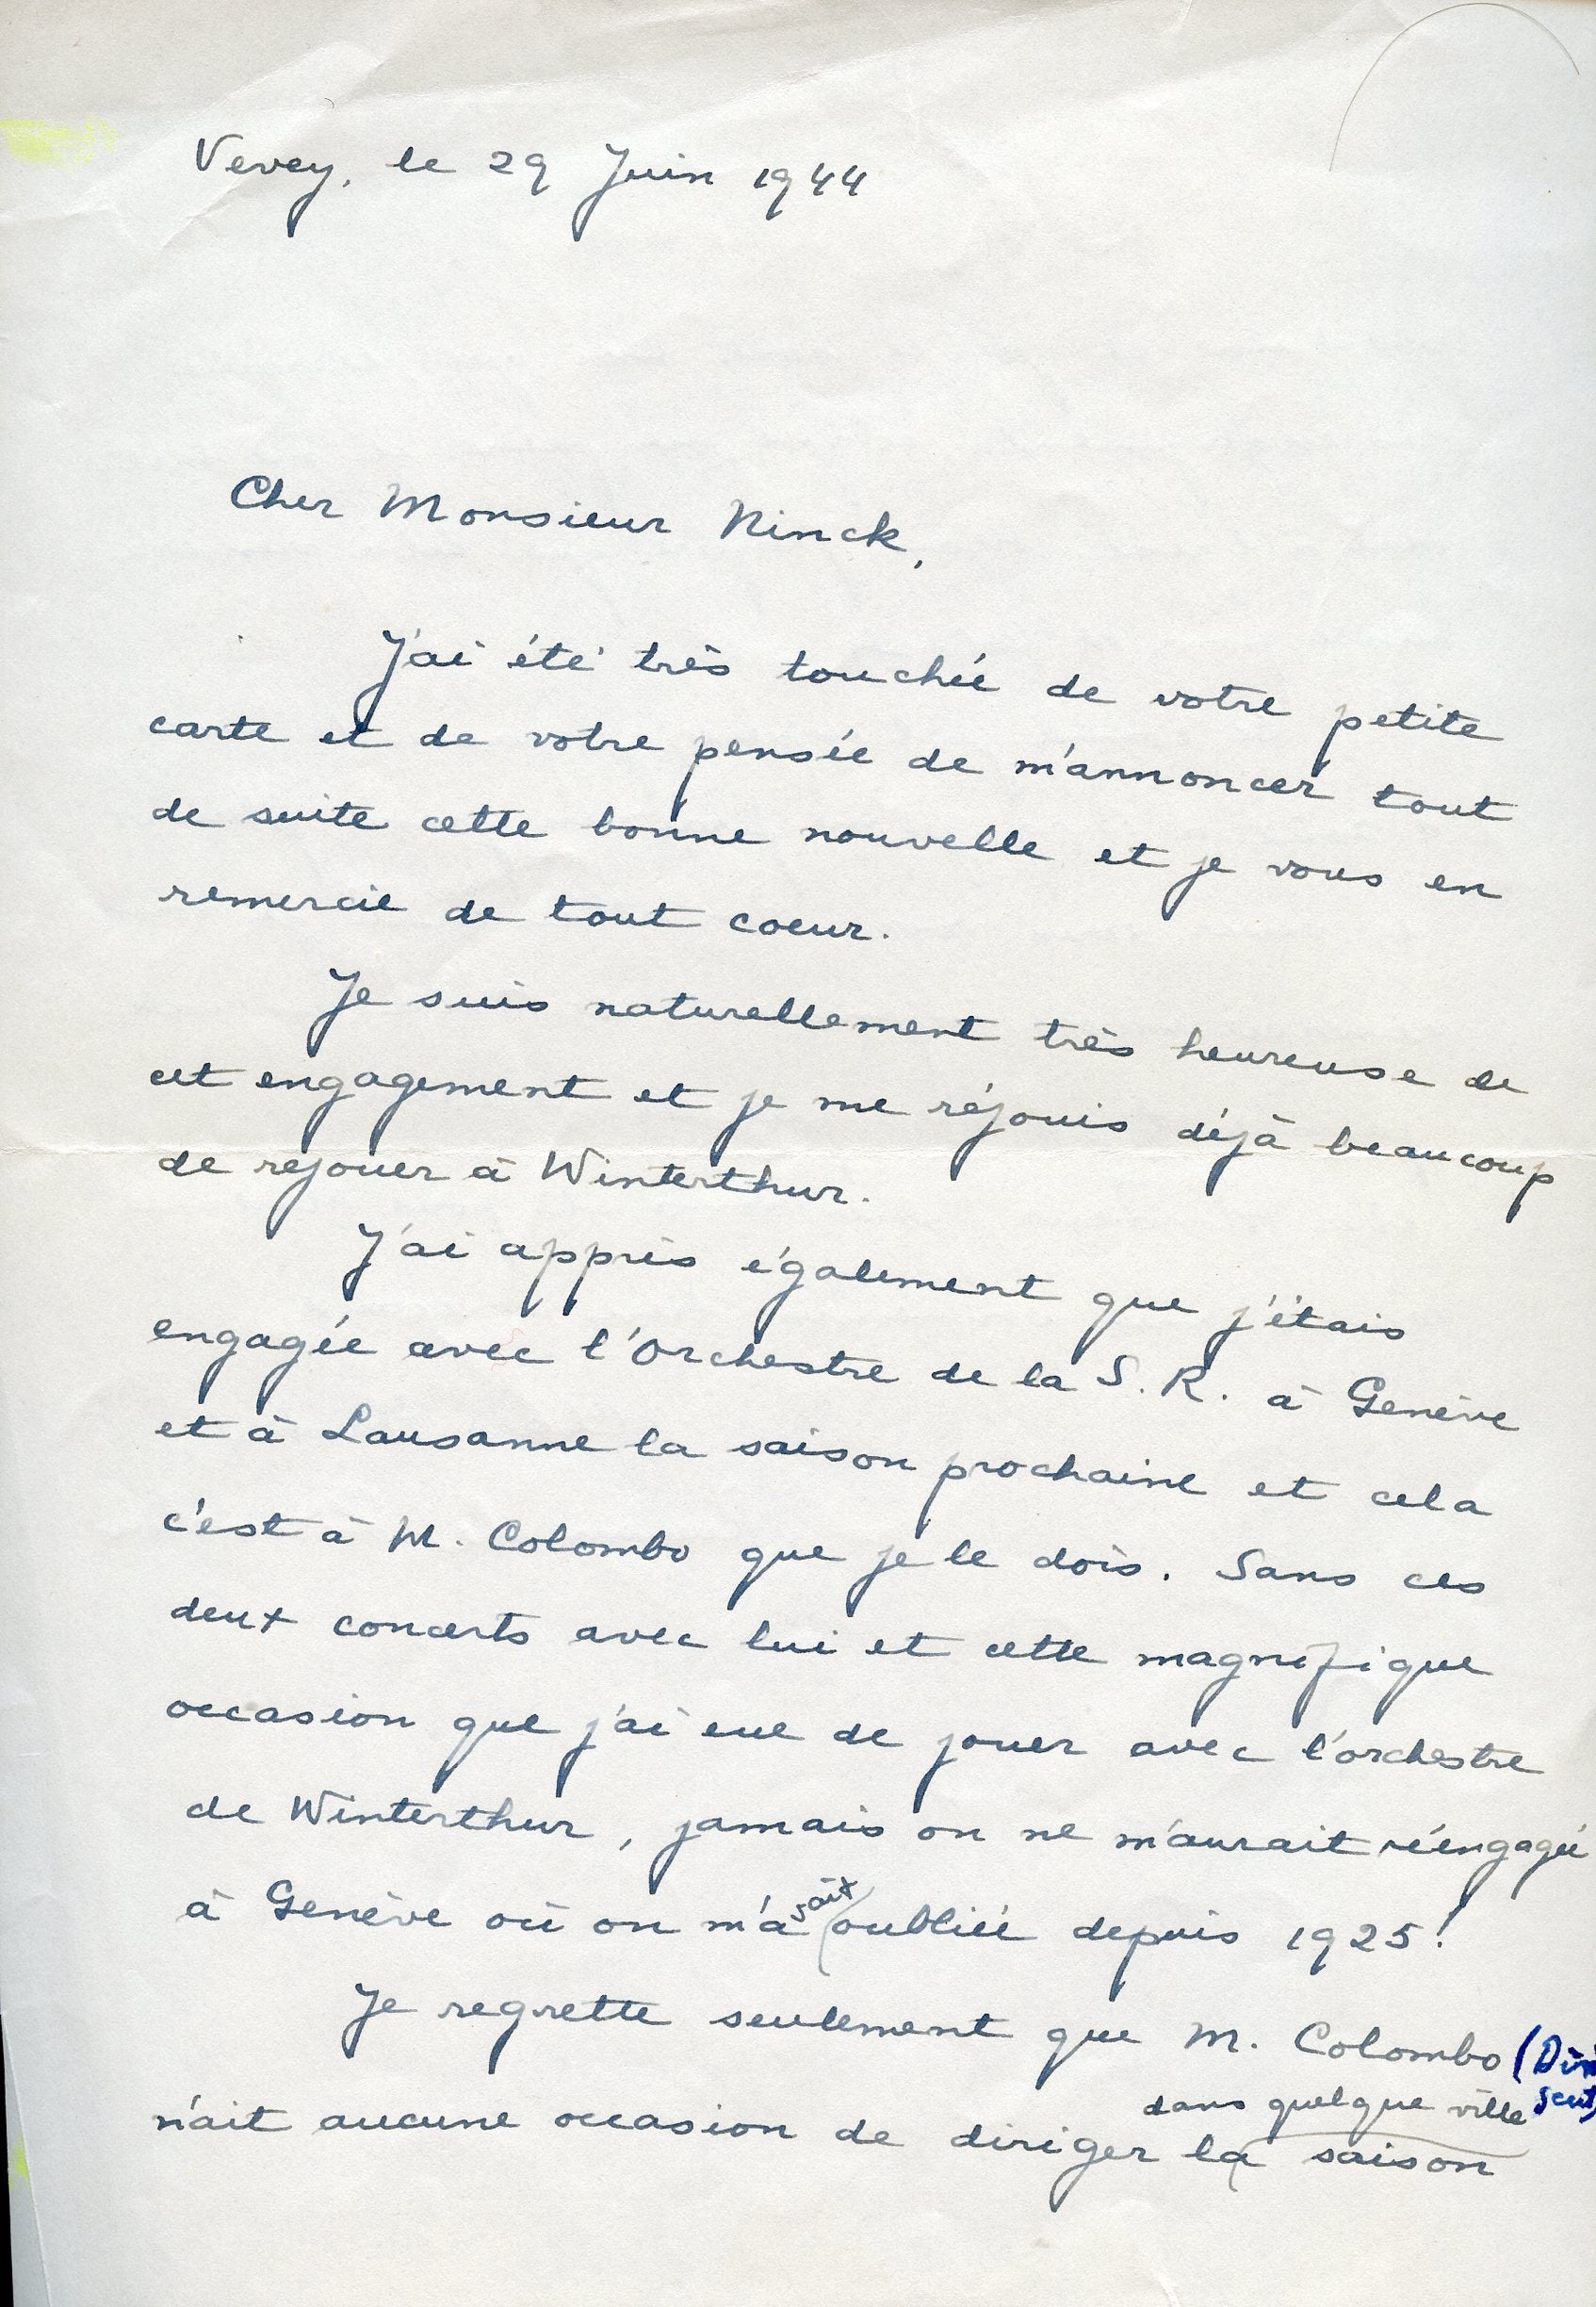 Vevey, le 29 Juin 1944
Cher Monsieur Rinck,
J'ai été très touchée de votre petite
carte et de votre pensée de m'annoncer tout
de suite cette bonne nouvelle et je vous en
remercie de tout coeur.
Je suis naturellement très heureuse de
cet engagement et je me réjouis déjà beaucoup
de rejouer à Winterthur.
J'ai appris également que j'étais
engagée avec l'Orchestre de la S. R. à Genève
et à Lausanne la saison prochaine et cela
c'est à M. Colombo que je le dois. Sans ces
deux concerts avec lui et cette magnifique
occasion que j'ai eue de jouer avec l'orchestre
de Winterthur, jamais on ne m'aurait réengagée
à Genève où on m'avait oubliée depuis 1925!
Je regrette seulement que M. Colombo
dans quelque ville
n'ait aucune occasion de diriger la saison